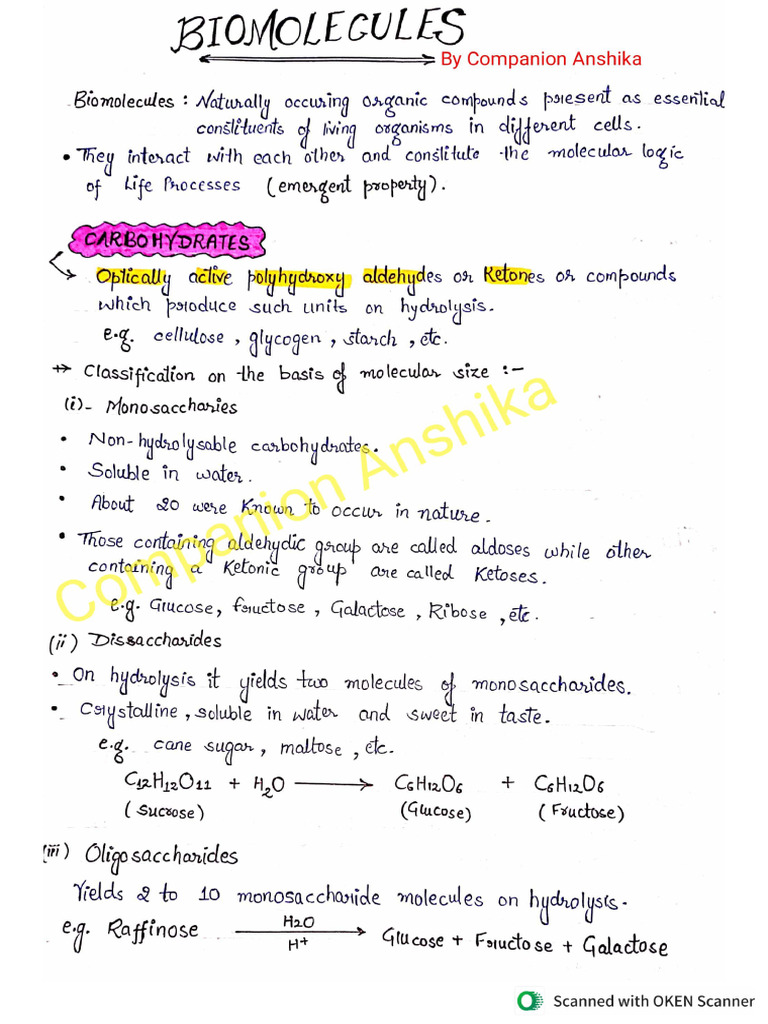 BIOMOLECULES
By Companion Anshika
Biomolecules : Naturally occuring organic compounds present as essential
constituents of living organisms in different cells.
• They interact with each other and constitute the molecular logic
of Life Processes (emergent property).
CARBOHYDRATES
Optically active polyhydroxy aldehydes or Ketones or compounds
which produce such units on hydrolysis.
e.g. cellulose, glycogen, starch, etc.
Classification on the basis of molecular size :-
(i)- Monosaccharies
• Non-hydrolysable carbohydrates.
• Soluble in water.
• About 20 were Known to occur in nature.
• Those containing aldehydic group are called aldoses while other
containing a Ketonic group are called Ketoses.
e.g. Glucose, fructose, Galactose, Ribose, etc.
Companion Anshika
(ii) Dissaccharides
• On hydrolysis it yields two molecules of monosaccharides.
• Crystalline, soluble in water and sweet in taste.
e.g. cane sugar, maltose, etc.
C12H12O11 + H2O → C6H12O6 + C6H12O6
(Sucrose) (Glucose) (Fructose)
(iii) Oligosaccharides
Yields 2 to 10 monosaccharide molecules on hydrolysis.
H2O
e.g. Raffinose → Glucose + Fructose + Galactose
H+
Scanned with OKEN Scanner